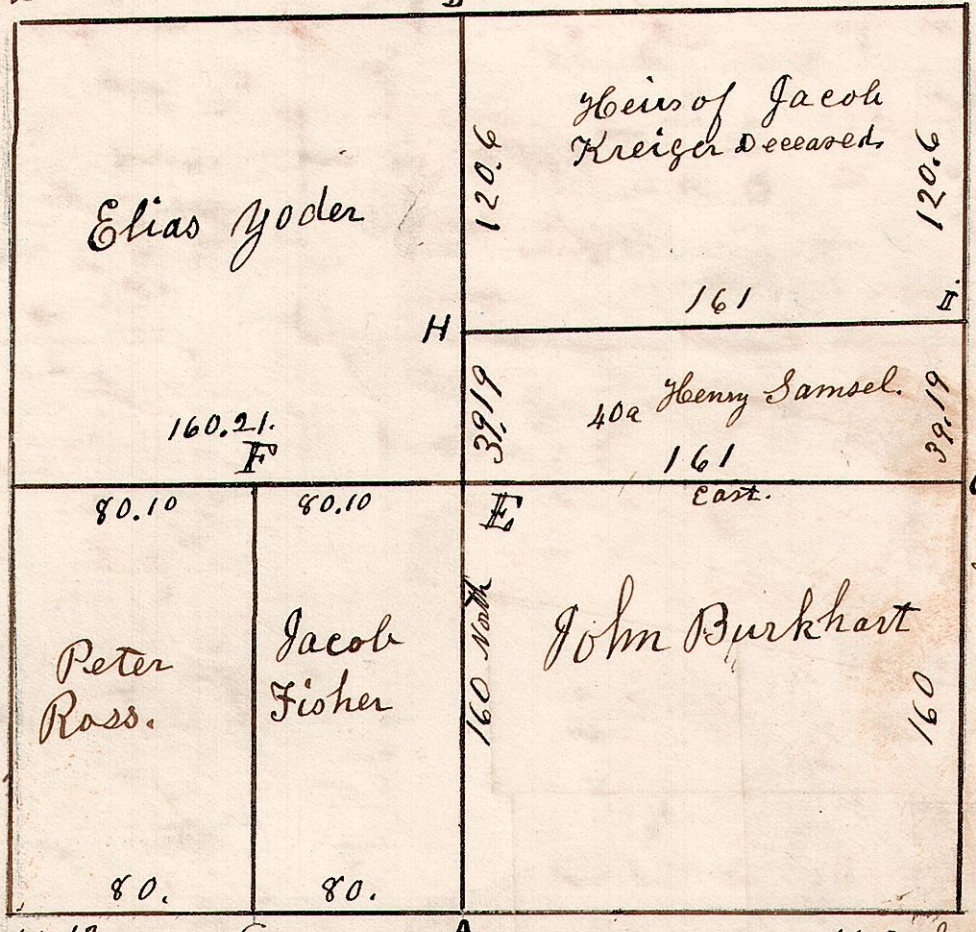 Elias Yoder
H
160.21.
F
Heirs of Jacob
Kreiger Deceased
120.6
120.6
161
II.
39,19
40a Henry Samsel.
39,19
161
East.
80.10
80.10
E
Peter
Ross.
Jacob
Fisher
160 North
John Burkhart
160
80.
80.
A